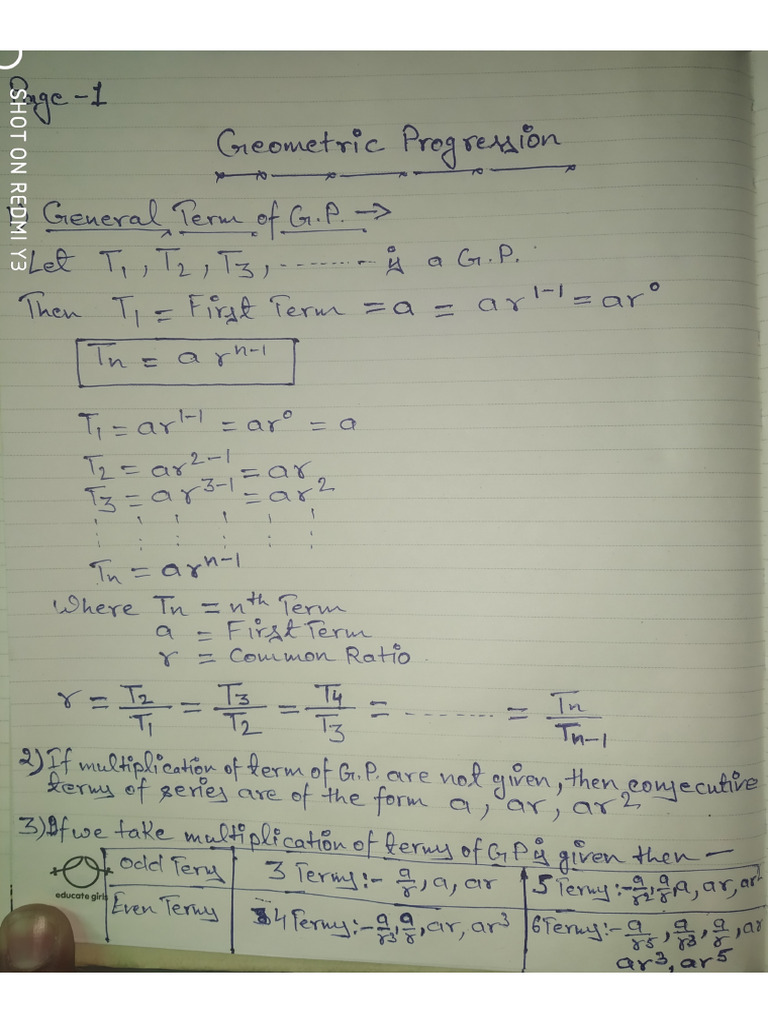 Page-1
SHOT ON REDMI Y3
Geometric Progression
1) General Term of G.P. →
Let T₁, T₂, T₃, ......... is a G.P.
Then T₁ = First Term = a = ar¹⁻¹ = ar⁰
Tn = a rⁿ⁻¹
T₁ = ar¹⁻¹ = ar⁰ = a
T₂ = ar²⁻¹ = ar
T₃ = ar³⁻¹ = ar²
Tn = arⁿ⁻¹
Where Tn = nth Term
a = First Term
r = Common Ratio
r = T₂/T₁ = T₃/T₂ = T₄/T₃ = ........ = Tn/Tn-1
2) If multiplication of term of G.P. are not given, then consecutive
terms of series are of the form a, ar, ar²
3) If we take multiplication of terms of G.P is given then —
Odd Terms 3 Terms:- a/r, a, ar 5 Terms:- a/r², a/r, a, ar, ar²
educate girls
Even Terms 4 Terms:- a/r³, a/r, ar, ar³ 6 Terms:- a/r⁵, a/r³, a/r, ar
ar³, ar⁵